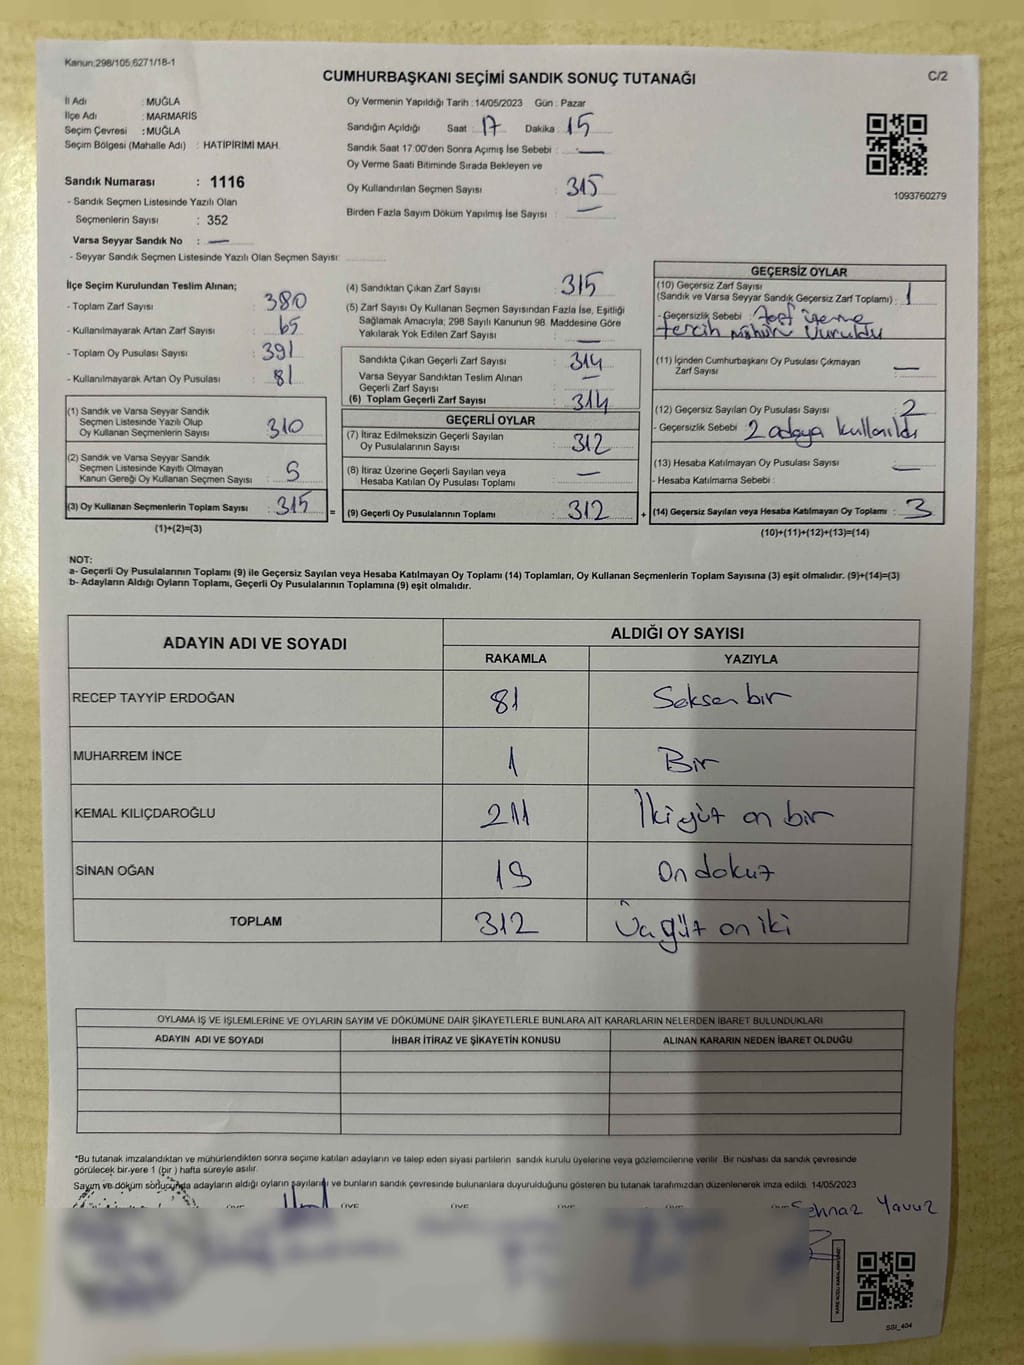 Kanun;298/105,6271/18-1
CUMHURBAŞKANI SEÇİMİ SANDIK SONUÇ TUTANAĞI
C/2
İl Adı : MUĞLA
İlçe Adı : MARMARİS
Seçim Çevresi : MUĞLA
Seçim Bölgesi (Mahalle Adı) : HATİPİRİMİ MAH.
Oy Vermenin Yapıldığı Tarih : 14/05/2023 Gün : Pazar
Sandığın Açıldığı Saat : 17 Dakika : 15
Sandık Saat 17:00'den Sonra Açımış İse Sebebi : —
Oy Verme Saati Bitiminde Sırada Bekleyen ve
Oy Kullandırılan Seçmen Sayısı : 315
Birden Fazla Sayım Döküm Yapılmış İse Sayısı : —
1093760279
Sandık Numarası : 1116
- Sandık Seçmen Listesinde Yazılı Olan
Seçmenlerin Sayısı : 352
Varsa Seyyar Sandık No : —
- Seyyar Sandık Seçmen Listesinde Yazılı Olan Seçmen Sayısı:
İlçe Seçim Kurulundan Teslim Alınan;
- Toplam Zarf Sayısı : 380
- Kullanılmayarak Artan Zarf Sayısı : 65
- Toplam Oy Pusulası Sayısı : 391
- Kullanılmayarak Artan Oy Pusulası : 81
(1) Sandık ve Varsa Seyyar Sandık
Seçmen Listesinde Yazılı Olup
Oy Kullanan Seçmenlerin Sayısı : 310
(2) Sandık ve Varsa Seyyar Sandık
Seçmen Listesinde Kayıtlı Olmayan
Kanun Gereği Oy Kullanan Seçmen Sayısı : 5
(3) Oy Kullanan Seçmenlerin Toplam Sayısı : 315 =
(1)+(2)=(3)
(4) Sandıktan Çıkan Zarf Sayısı : 315
(5) Zarf Sayısı Oy Kullanan Seçmen Sayısından Fazla İse, Eşitliği
Sağlamak Amacıyla; 298 Sayılı Kanunun 98. Maddesine Göre
Yakılarak Yok Edilen Zarf Sayısı : —
Sandıkta Çıkan Geçerli Zarf Sayısı : 314
Varsa Seyyar Sandıktan Teslim Alınan
Geçerli Zarf Sayısı : —
(6) Toplam Geçerli Zarf Sayısı : 314
GEÇERLİ OYLAR
(7) İtiraz Edilmeksizin Geçerli Sayılan
Oy Pusulası Sayısı : 312
(8) İtiraz Üzerine Geçerli Sayılan veya
Hesaba Katılan Oy Pusulası Toplamı : —
(9) Geçerli Oy Pusulalarının Toplamı : 312 +
GEÇERSİZ OYLAR
(10) Geçersiz Zarf Sayısı
(Sandık ve Varsa Seyyar Sandık Geçersiz Zarf Toplamı) : 1
- Geçersizlik Sebebi : Zarf üzerine
tercih mührü vuruldu
(11) İçinden Cumhurbaşkanı Oy Pusulası Çıkmayan
Zarf Sayısı : —
(12) Geçersiz Sayılan Oy Pusulası Sayısı : 2
- Geçersizlik Sebebi : 2 adaya kullanıldı
(13) Hesaba Katılmayan Oy Pusulası Sayısı : —
- Hesaba Katılmama Sebebi :
(14) Geçersiz Sayılan veya Hesaba Katılmayan Oy Toplamı : 3
(10)+(11)+(12)+(13)=(14)
NOT:
a- Geçerli Oy Pusulalarının Toplamı (9) ile Geçersiz Sayılan veya Hesaba Katılmayan Oy Toplamı (14) Toplamları, Oy Kullanan Seçmenlerin Toplam Sayısına (3) eşit olmalıdır. (9)+(14)=(3)
b- Adayların Aldığı Oyların Toplamı, Geçerli Oy Pusulalarının Toplamına (9) eşit olmalıdır.
ADAYIN ADI VE SOYADI
ALDIĞI OY SAYISI
RAKAMLA YAZIYLA
RECEP TAYYİP ERDOĞAN 81 Seksen bir
MUHARREM İNCE 1 Bir
KEMAL KILIÇDAROĞLU 211 İkiyüz on bir
SİNAN OĞAN 19 On dokuz
TOPLAM 312 Üçyüz on iki
OYLAMA İŞ VE İŞLEMLERİNE VE OYLARIN SAYIM VE DÖKÜMÜNE DAİR ŞİKAYETLERLE BUNLARA AİT KARARLARIN NELERDEN İBARET BULUNDUKLARI
ADAYIN ADI VE SOYADI İHBAR İTİRAZ VE ŞİKAYETİN KONUSU ALINAN KARARIN NEDEN İBARET OLDUĞU
*Bu tutanak imzalandıktan ve mühürlendikten sonra seçime katılan adayların ve talep eden siyasi partilerin sandık kurulu üyelerine veya gözlemcilerine verilir. Bir nüshası da sandık çevresinde
görülecek bir yere 1 (bir ) hafta süreyle asılır.
Sayım ve döküm sonucunda adayların aldığı oyların sayıları ve bunların sandık çevresinde bulunanlara duyurulduğunu gösteren bu tutanak tarafımızdan düzenlenerek imza edildi. 14/05/2023
ÜYE ÜYE ÜYE ÜYE ÜYE
Şehnaz Yavuz
SSI_404